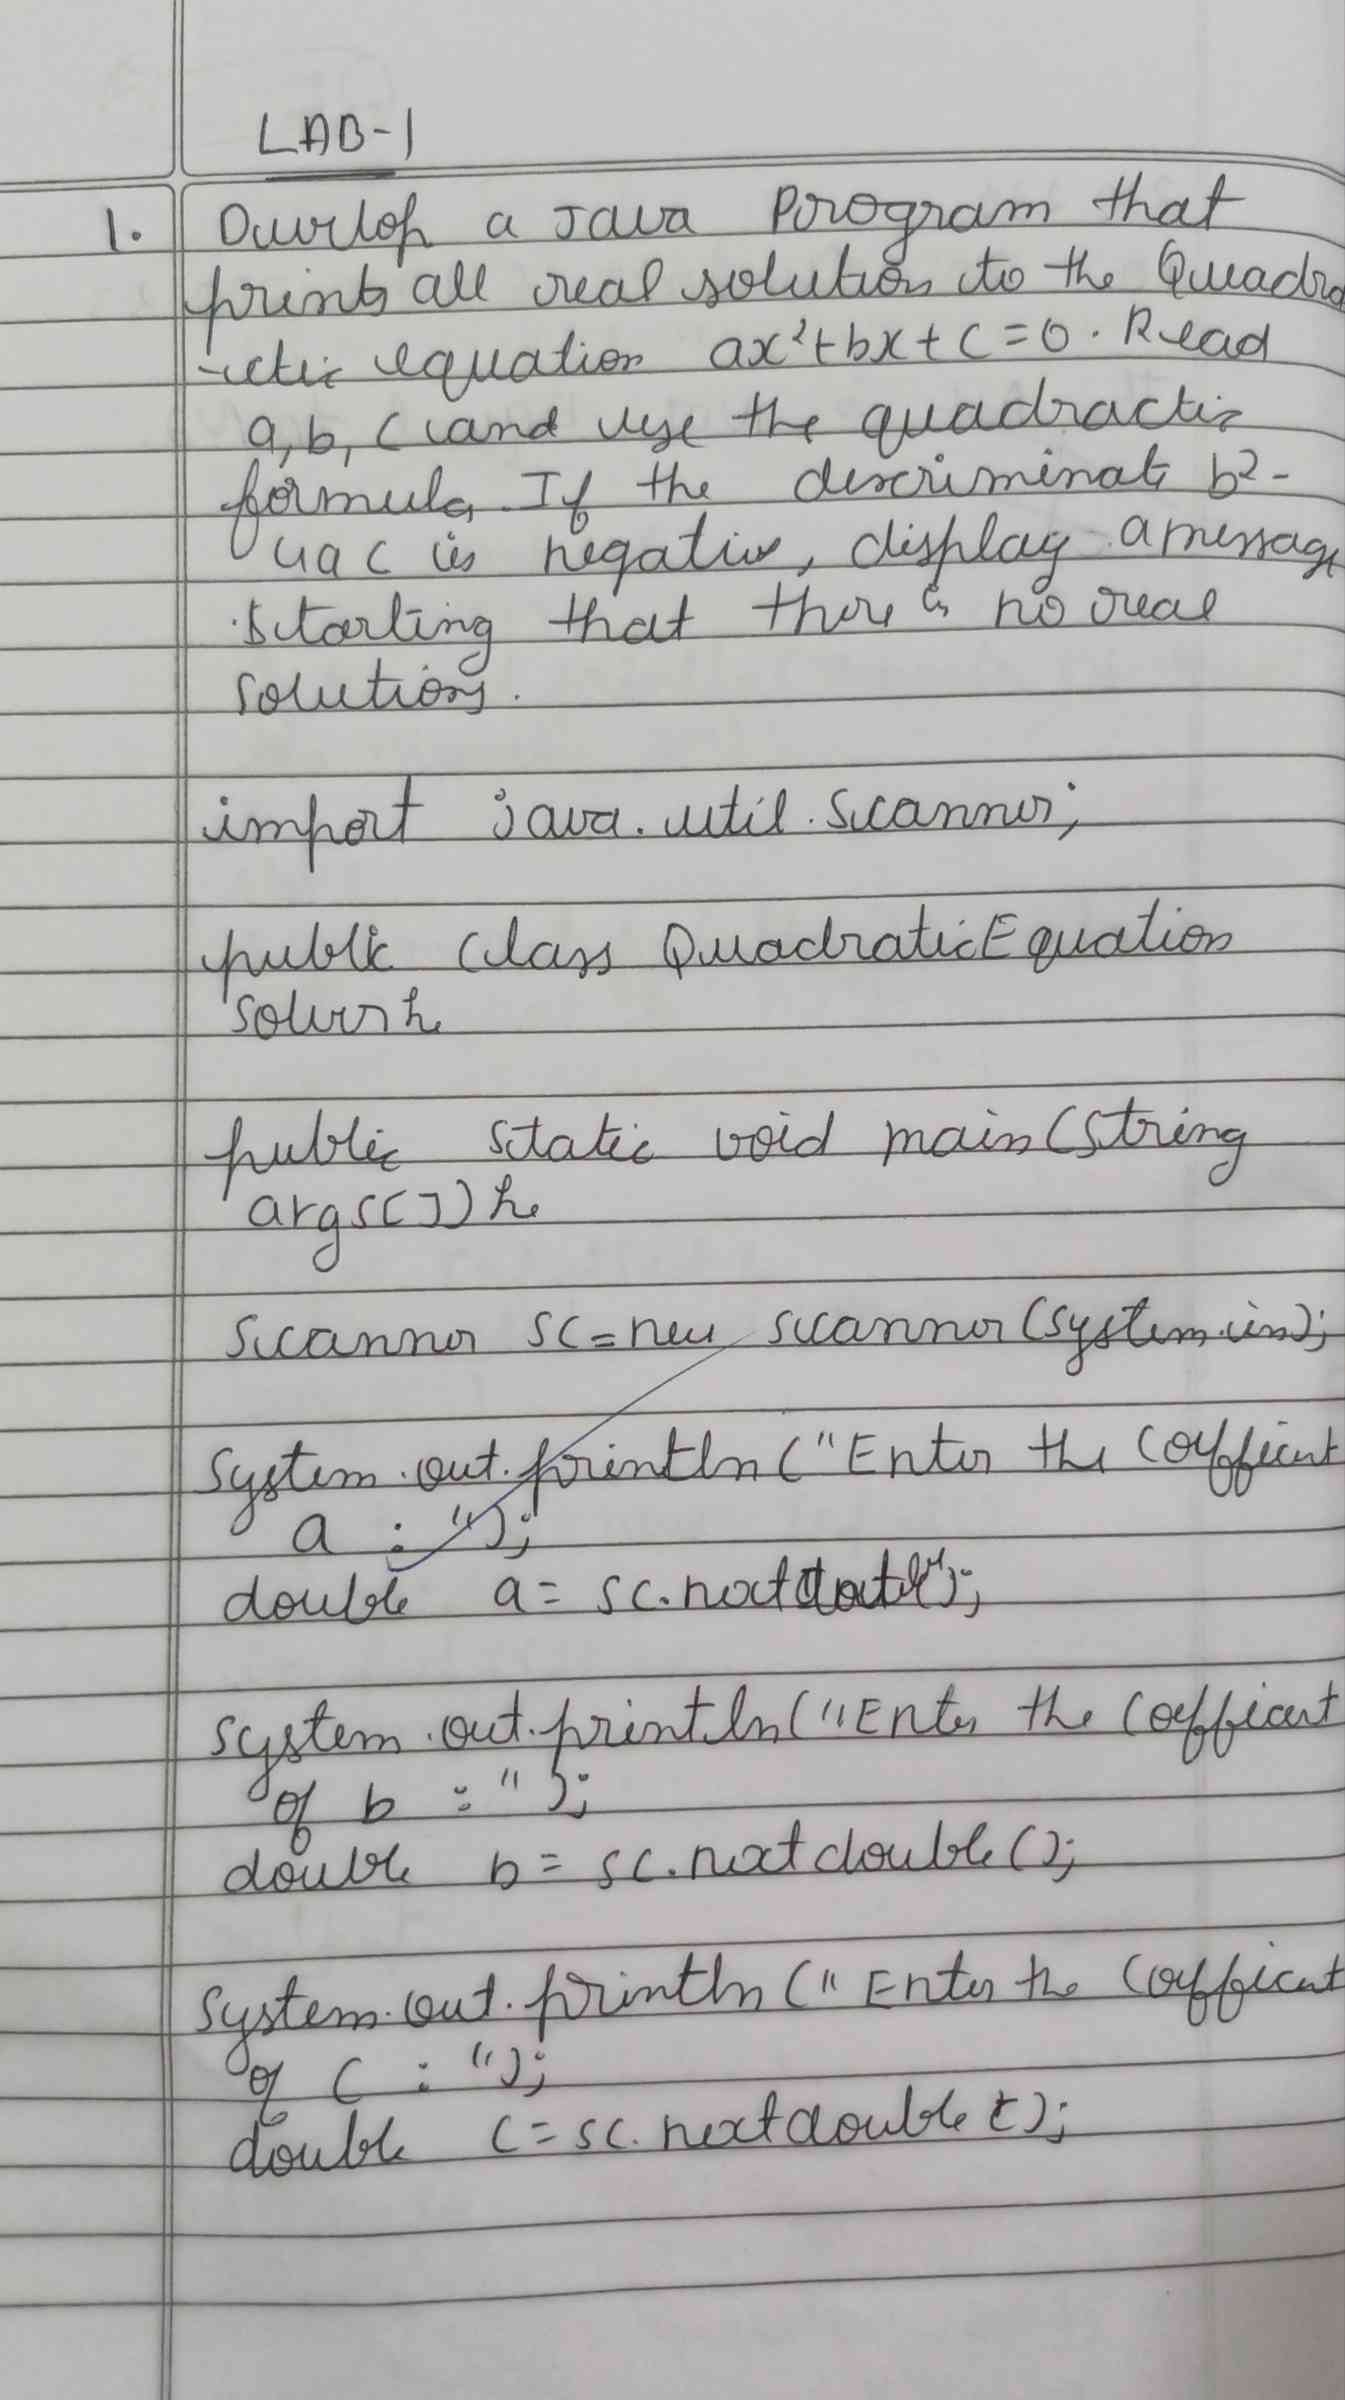 LAB-1
1. Develop a Java Program that
prints all real solution to the Quadra
-ctic equation ax²+bx+c=0. Read
a, b, c and use the quadractic
formula. If the descriminate b²-
4ac is negative, display a message
starting that there is no real
solutions.
import java.util.Scanner;
public class QuadraticEquation
solver {
public static void main(String
args[]) {
Scanner sc=new scanner(system.in);
System.out.println("Enter the coefficient
a : ");
double a= sc.next ();
system.out.println("Enter the coefficient
of b : ");
double b= sc.nextdouble();
System.out.println("Enter the coefficient
of c : ");
double c=sc.nextdouble();